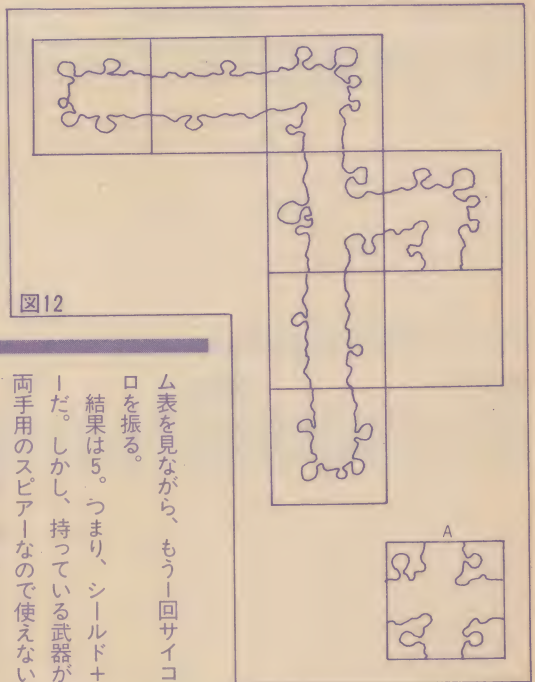 図12
A
ム表を見ながら、もう一回サイコ
ロを振る。
結果は5。つまり、シールド+
ーだ。しかし、持っている武器が
両手用のスピアーなので使えない